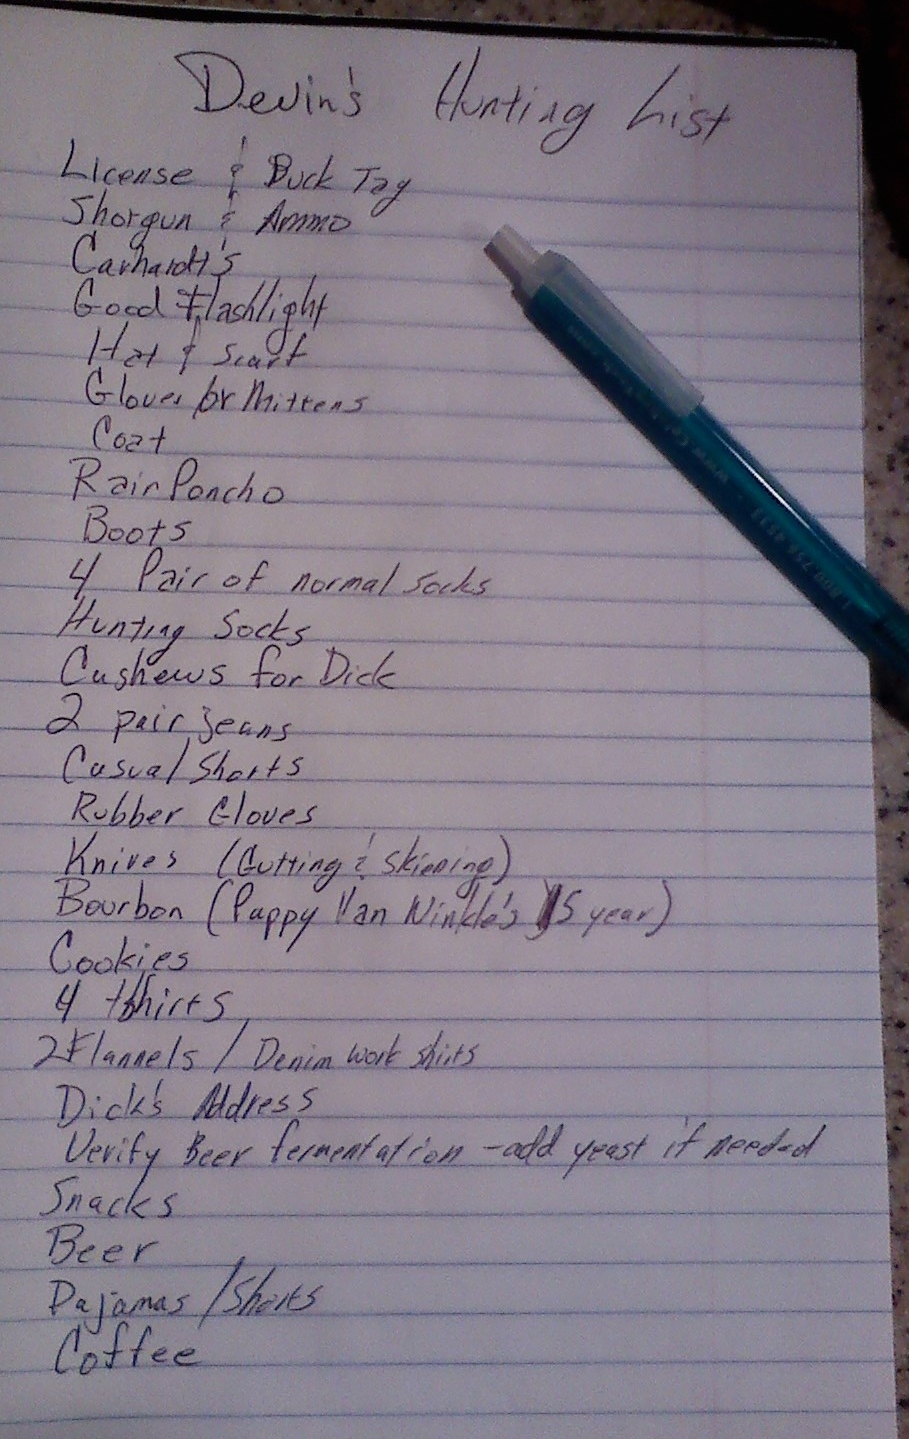 Devin's Hunting List
License & Buck Tag
Shotgun & Ammo
Carhardtt's
Good Flashlight
Hat & Scarf
Gloves or Mittens
Coat
Rain Poncho
Boots
4 Pair of normal socks
Hunting Socks
Cashews for Dick
2 pair jeans
Casual Shorts
Rubber Gloves
Knives (Gutting & Skinning)
Bourbon (Pappy Van Winkle's 15 year)
Cookies
4 tshirts
2 Flannels / Denim work shirts
Dick's Address
Verify Beer fermentation - add yeast if needed
Snacks
Beer
Pajamas / Shorts
Coffee